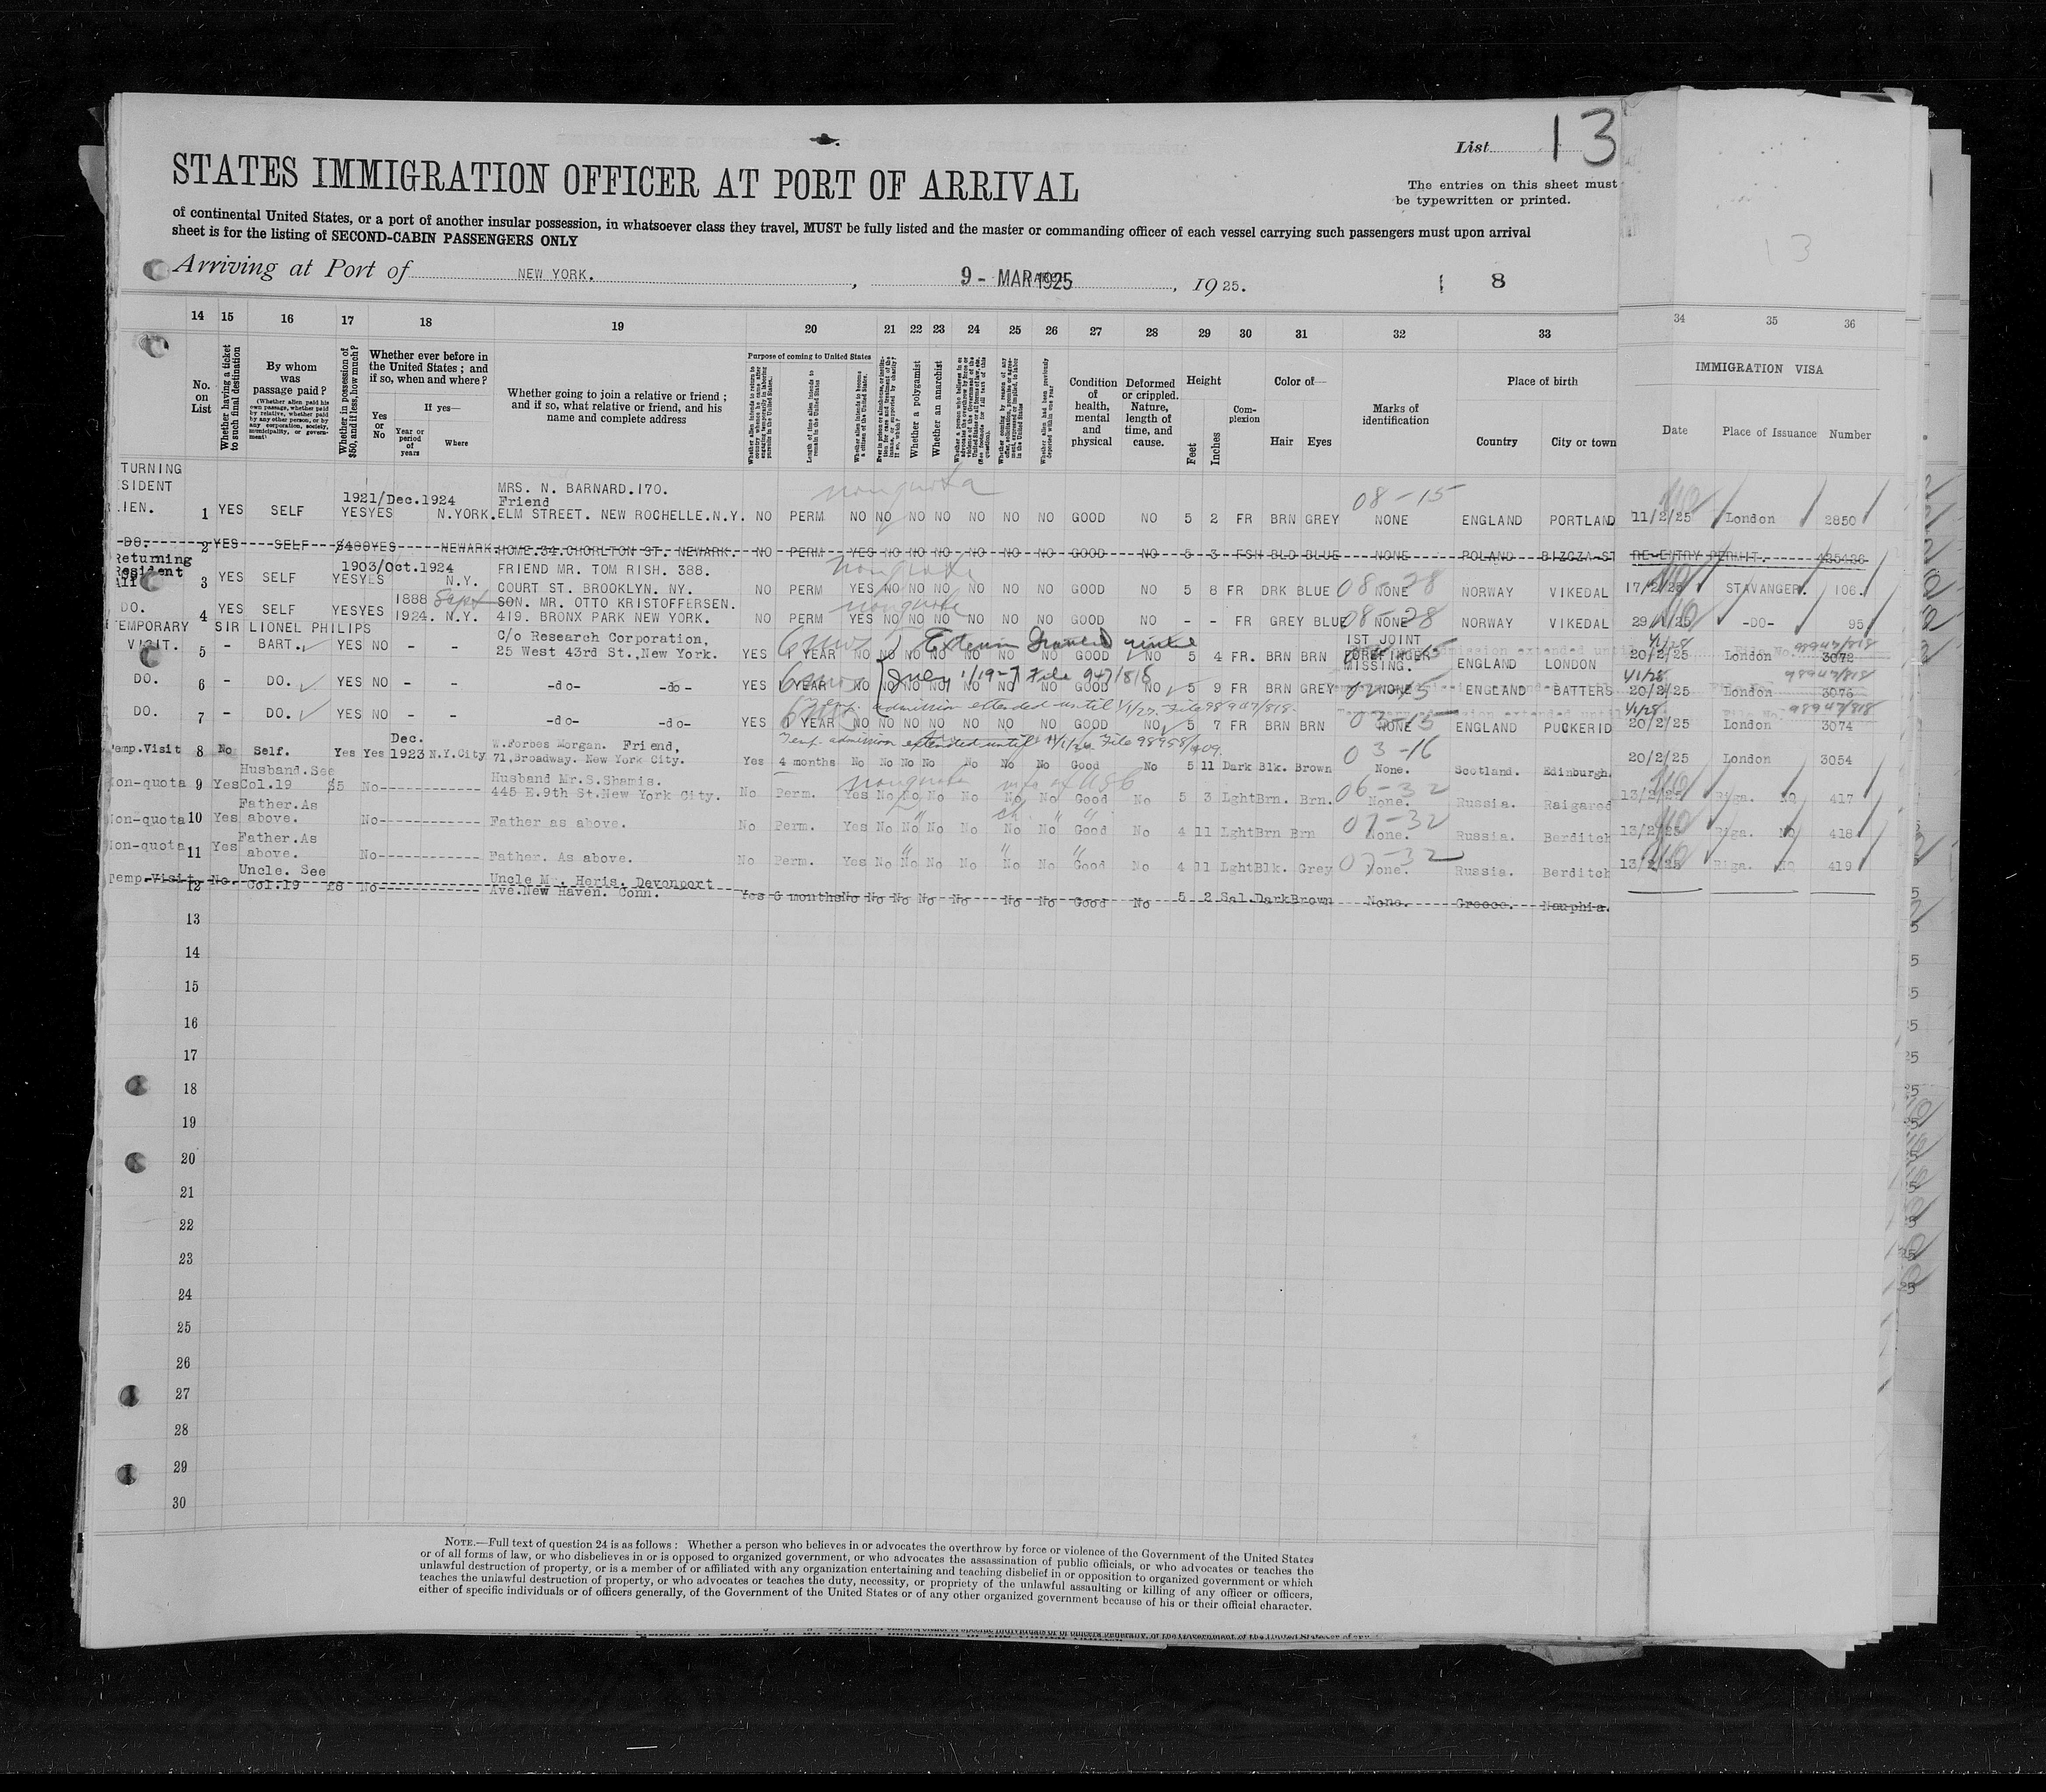 List 13
STATES IMMIGRATION OFFICER AT PORT OF ARRIVAL
The entries on this sheet must
be typewritten or printed.
of continental United States, or a port of another insular possession, in whatsoever class they travel, MUST be fully listed and the master or commanding officer of each vessel carrying such passengers must upon arrival
sheet is for the listing of SECOND-CABIN PASSENGERS ONLY
13
Arriving at Port of NEW YORK. , 9 - MAR 1925 , 1925. 8
14 15 16 17 18 19 20 21 22 23 24 25 26 27 28 29 30 31 32 33 34 35 36
No. on List
Whether having a ticket to such final destination
By whom was passage paid?
(Whether alien paid his own passage, whether paid by relative, whether paid by any other person, or by any corporation, society, municipality, or government)
Whether in possession of $50, and if less, how much?
Whether ever before in the United States; and if so, when and where?
Yes or No
If yes—
Year or period of years
Where
Whether going to join a relative or friend; and if so, what relative or friend, and his name and complete address
Purpose of coming to United States
Length of time alien intends to remain in the United States
Whether alien intends to become a citizen of the United States.
Whether a polygamist
Whether an anarchist
Condition of health, mental and physical
Deformed or crippled. Nature, length of time, and cause.
Height
Feet Inches
Complexion
Color of—
Hair Eyes
Marks of identification
Place of birth
Country City or town
IMMIGRATION VISA
Date Place of Issuance Number
TURNING
SIDENT
LIEN. 1 YES SELF YES YES 1921/Dec.1924 N.YORK. MRS. N. BARNARD.170. Friend ELM STREET. NEW ROCHELLE.N.Y. NO PERM NO NO NO NO NO NO NO GOOD NO 5 2 FR BRN GREY 08-15 NONE ENGLAND PORTLAND 11/2/25 London 2850
nonquota
DO. 2 YES SELF $400 YES NEWARK HOME.34.CHORLTON ST. NEWARK. NO PERM YES NO NO NO NO NO NO GOOD NO 5 3 FSH BLD BLUE NONE POLAND RE-ENTRY PERMIT.
Returning
Resident
Ali 3 YES SELF YES YES 1903/Oct.1924 N.Y. FRIEND MR. TOM RISH. 388. COURT ST. BROOKLYN. NY. NO PERM YES NO NO NO NO NO NO GOOD NO 5 8 FR DRK BLUE 08-28 NONE NORWAY VIKEDAL 17/2/25 STAVANGER. 106.
nonquota
DO. 4 YES SELF YES YES 1888 Sept 1924. N.Y. SON. MR. OTTO KRISTOFFERSEN. 419. BRONX PARK NEW YORK. NO PERM YES NO NO NO NO NO NO GOOD NO - - FR GREY BLUE 08-28 NONE NORWAY VIKEDAL 29/1/25 -DO- 95
nonquota
TEMPORARY SIR LIONEL PHILIPS
VISIT. 5 - BART. YES NO - - C/o Research Corporation, 25 West 43rd St., New York. YES 1 YEAR NO NO NO NO NO NO NO GOOD NO 5 4 FR. BRN BRN 1ST JOINT FOREFINGER MISSING. ENGLAND LONDON 20/2/25 London 3072
6 mos
DO. 6 - DO. YES NO - - -do- -do- YES 1 YEAR NO NO NO NO NO NO NO GOOD NO 5 9 FR BRN GREY NONE ENGLAND BATTERS 20/2/25 London 3076
Temp. admission extended until 1/1/27. File 98947/818.
DO. 7 - DO. YES NO - - -do- -do- YES 1 YEAR NO NO NO NO NO NO NO GOOD NO 5 7 FR BRN BRN 03-15 NONE ENGLAND PUCKERID 20/2/25 London 3074
Temp. admission extended until
Temp.Visit 8 No Self. Yes Yes Dec. 1923 N.Y.City W.Forbes Morgan. Friend, 71,Broadway. New York City. Yes 4 months No No No No No No No Good No 5 11 Dark Blk. Brown 03-16 None. Scotland. Edinburgh. 20/2/25 London 3054
Non-quota 9 Yes Husband.See Col.19 $5 No Husband Mr.S.Shamis. 445 E.9th St.New York City. No Perm. Yes No No No No No No Good No 5 3 Lght Brn. Brn. 06-32 None. Russia. Raigared 13/2/25 Riga. NQ 417
nonquota wife of USC
Non-quota 10 Yes Father.As above. No Father as above. No Perm. Yes No No No No No No Good No 4 11 Lght Brn Brn 07-32 None. Russia. Berditch 13/2/25 Riga. NQ 418
Non-quota 11 Yes Father.As above. No Father. As above. No Perm. Yes No No No No No No Good No 4 11 Lght Blk. Grey 07-32 None. Russia. Berditch 13/2/25 Riga. NQ 419
Temp.Visit 12 No. Uncle. See Col.19 No Uncle M. Heris. Devonport Ave.New Haven. Conn. Yes 6 months No No No No No No No Good No 5 2 Sal. Dark Brown None. Greece. Nauphia.
13
14
15
16
17
18
19
20
21
22
23
24
25
26
27
28
29
30
NOTE.—Full text of question 24 is as follows: Whether a person who believes in or advocates the overthrow by force or violence of the Government of the United States
or of all forms of law, or who disbelieves in or is opposed to organized government, or who advocates the assassination of public officials, or who advocates or teaches the
unlawful destruction of property, or is a member of or affiliated with any organization entertaining and teaching disbelief in or opposition to organized government or which
teaches the unlawful destruction of property, or who advocates or teaches the duty, necessity, or propriety of the unlawful assaulting or killing of any officer or officers,
either of specific individuals or of officers generally, of the Government of the United States or of any other organized government because of his or their official character.